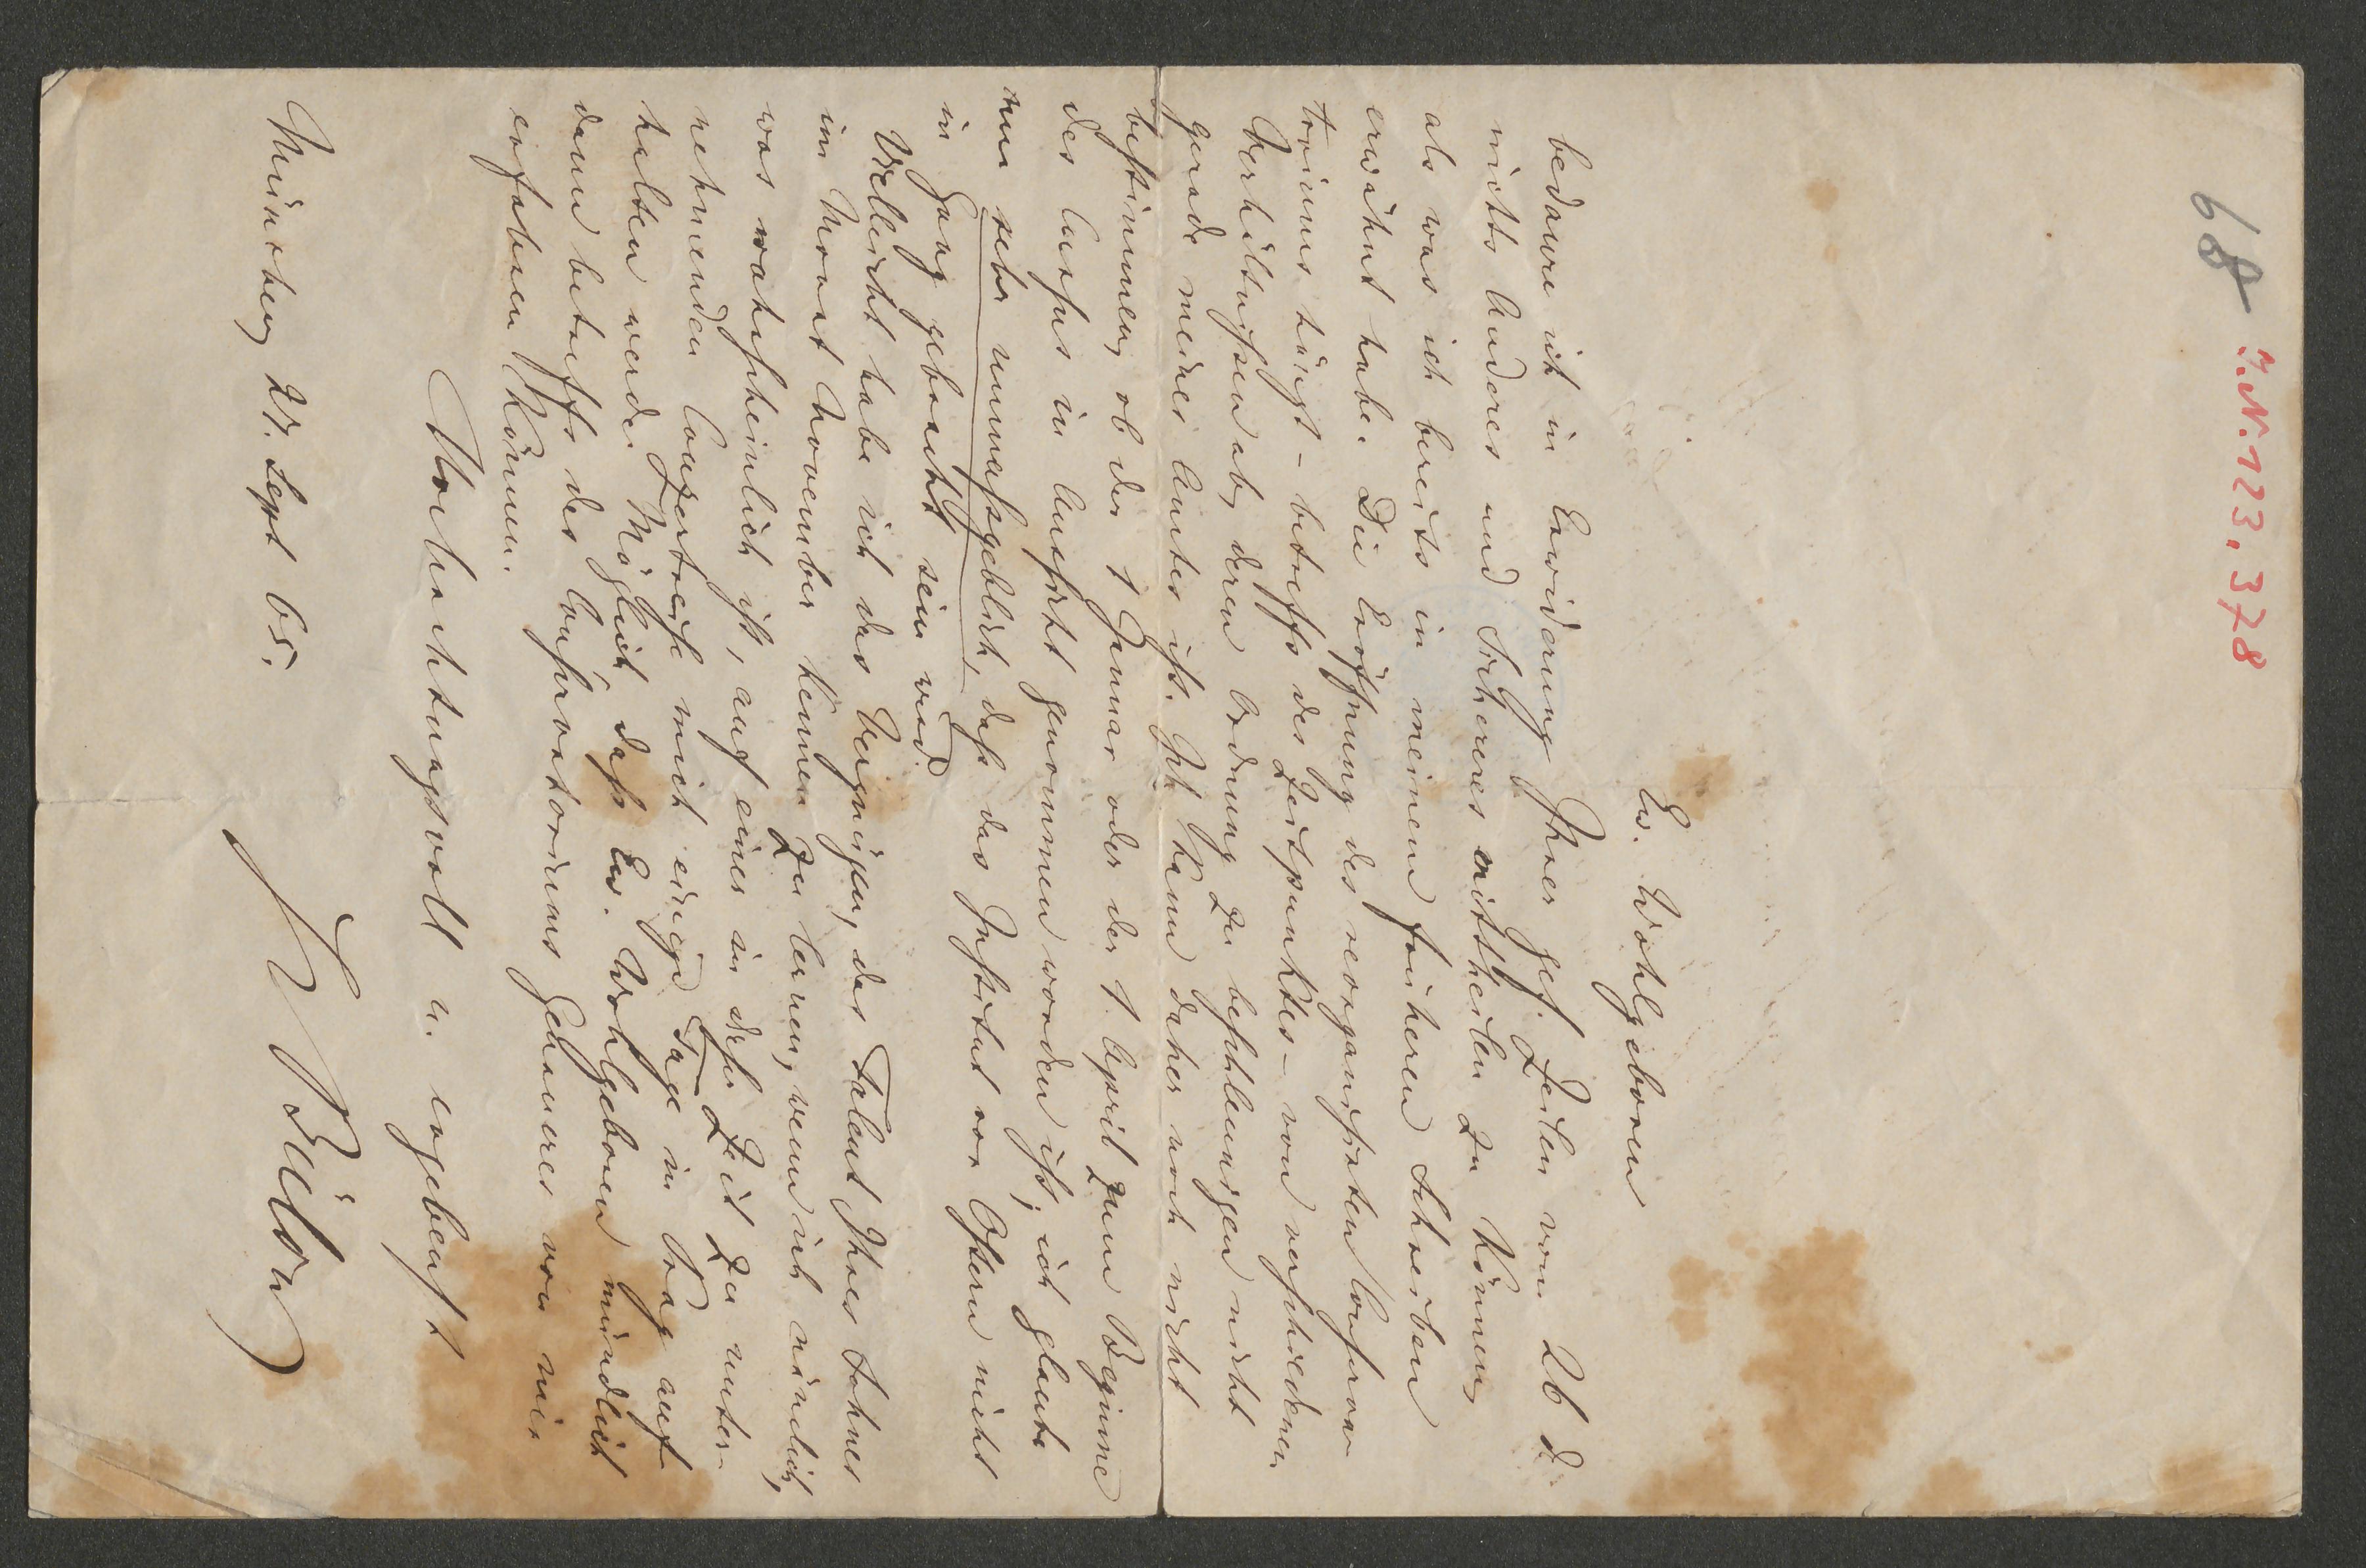 68
I.N. 123.378
Ew. Wohlgeboren
bedaure ich in Erwiderung Ihrer gef. Zeilen vom 26 d.
nichts Anderes und Sicheres mittheilen zu können,
als was ich bereits in meinem früheren Schreiben
erwähnt habe. Die Eröffnung des reorganisirten Conserva-
toriums hängt – betreffs des Zeitpunktes – von verschiedenen
Verhältnissen ab, deren Ordnung zu beschleunigen nicht
gerade meines Amtes ist. Ich kann daher noch nicht
bestimmen, ob der 1 Januar oder der 1. April zum Beginne
des Cursus in Aussicht genommen worden ist; ich glaube
nur sehr unmassgeblich, dass das Institut vor Ostern nicht
in Gang gebracht sein wird.
Vielleicht habe ich das Vergnügen, das Talent Ihres Sohnes
im Monat November kennen zu lernen, wenn ich nämlich,
was wahrscheinlich ist, auf einer in dieser Zeit zu unter-
nehmenden Conzertreise mich einige Tage in Prag auf-
halten werde. Möglich, dass Ew. Wohlgeboren mündlich
dann betreffs des Conservatoriums Genaueres von mir
erfahren können.
Hochachtungsvoll u. ergebenst
München, 27. Sept 65.
H Bülow